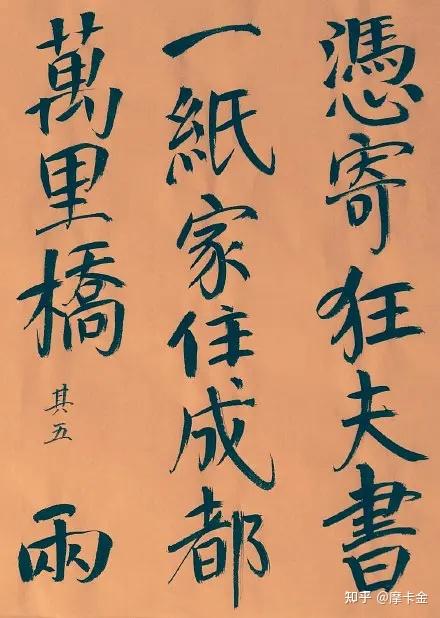 憑寄狂夫書
一紙家住成都
萬里橋
其五
兩
知乎 @摩卡金